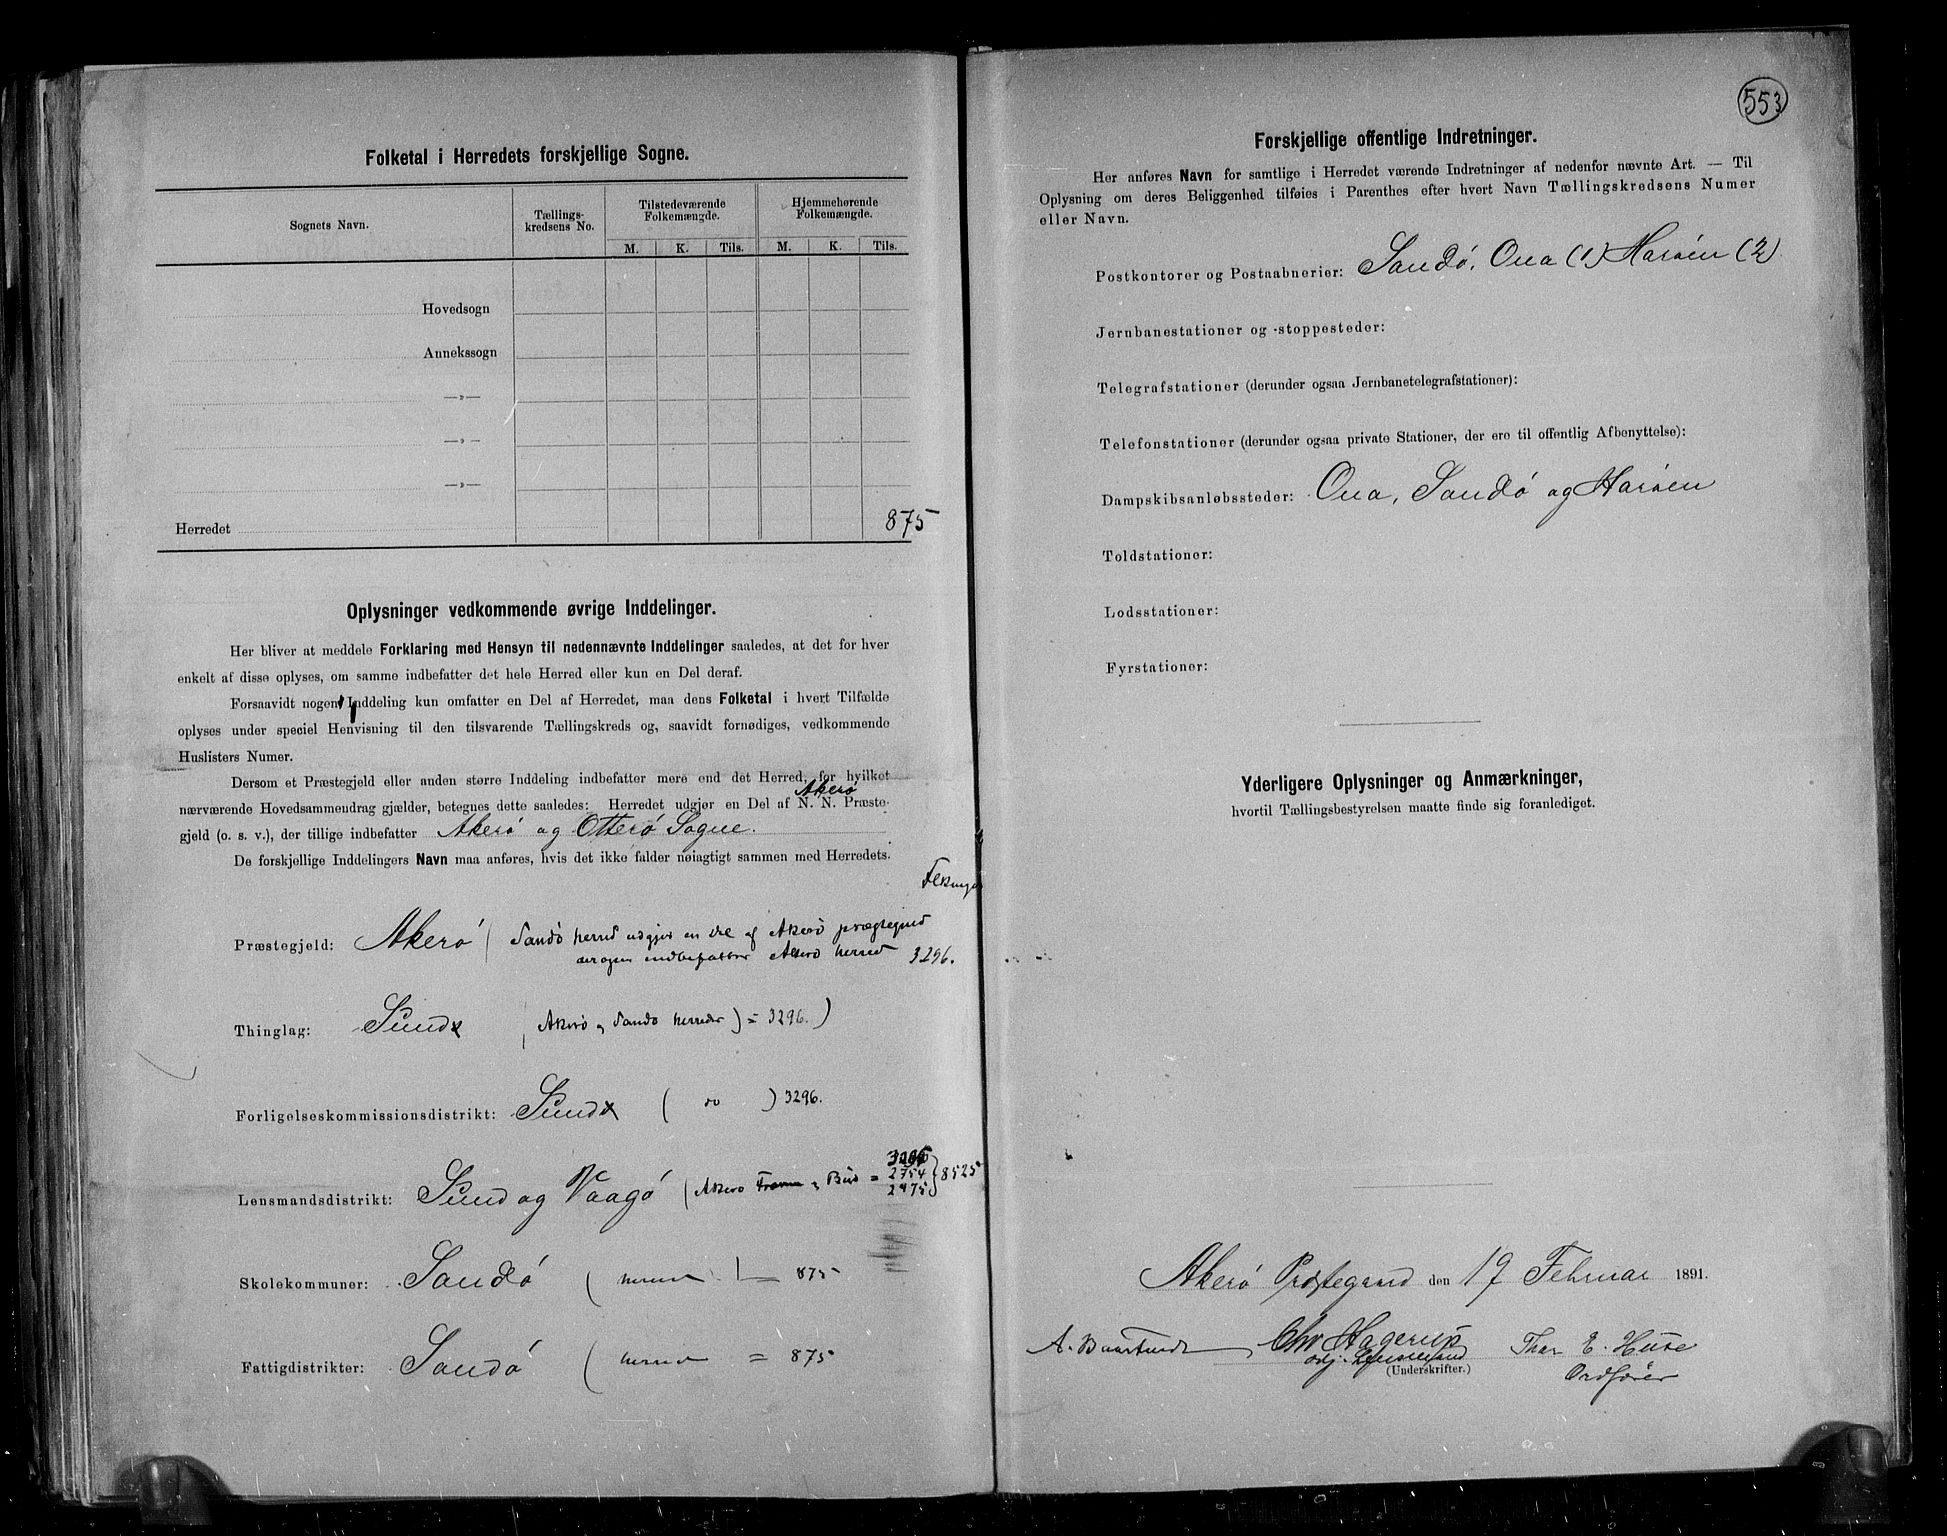 Folketal i Herredets forskjellige Sogne.
Sognets Navn.
Tællings-
kredsens No.
Tilstedeværende
Folkemængde.
Hjemmehørende
Folkemængde.
M. K. Tils. M. K. Tils.
Hovedsogn
Annekssogn
—»—
—»—
—»—
Herredet 875
Oplysninger vedkommende øvrige Inddelinger.
Her bliver at meddele Forklaring med Hensyn til nedennævnte Inddelinger saaledes, at det for hver
enkelt af disse oplyses, om samme indbefatter det hele Herred eller kun en Del deraf.
Forsaavidt nogen Inddeling kun omfatter en Del af Herredet, maa dens Folketal i hvert Tilfælde
oplyses under speciel Henvisning til den tilsvarende Tællingskreds og, saavidt fornødiges, vedkommende
Huslisters Numer.
Dersom et Præstegjeld eller anden større Inddeling indbefatter mere end det Herred, for hvilket
Akerø
nærværende Hovedsammendrag gjælder, betegnes dette saaledes: Herredet udgjør en Del af N. N. Præste-
gjeld (o. s. v.), der tillige indbefatter Akerø og Otterø Sogne.
De forskjellige Inddelingers Navn maa anføres, hvis det ikke falder nøiagtigt sammen med Herredets.
Præstegjeld: Akerø (Sandø herred udgjør en del af Akerø præstegjeld
indbefatter Akerø herred 3296.
Thinglag: Sund (Akerø og Sandø herreder) = 3296.)
Forligelseskommissionsdistrikt: Sund ( do ) 3296.
3296
Lensmandsdistrikt: Sund og Vaagø (Akerø Fræna og Bud = 2754 } 8525
2475
Skolekommuner: Sandø (herred) = 875
Fattigdistrikter: Sandø (herred = 875
553
Forskjellige offentlige Indretninger.
Her anføres Navn for samtlige i Herredet værende Indretninger af nedenfor nævnte Art. — Til
Oplysning om deres Beliggenhed tilføies i Parenthes efter hvert Navn Tællingskredsens Numer
eller Navn.
Postkontorer og Postaabnerier: Sandø, Ona (1) Harøen (2)
Jernbanestationer og -stoppesteder:
Telegrafstationer (derunder ogsaa Jernbanetelegrafstationer):
Telefonstationer (derunder ogsaa private Stationer, der ere til offentlig Afbenyttelse):
Dampskibsanløbssteder: Ona, Sandø og Harøen
Toldstationer:
Lodsstationer:
Fyrstationer:
Yderligere Oplysninger og Anmærkninger,
hvortil Tællingsbestyrelsen maatte finde sig foranlediget.
Akerø Præstegaard den 19 Februar 1891.
Chr Hagerup Thor E. Huse
Lensmand Ordfører
(Underskrifter.)